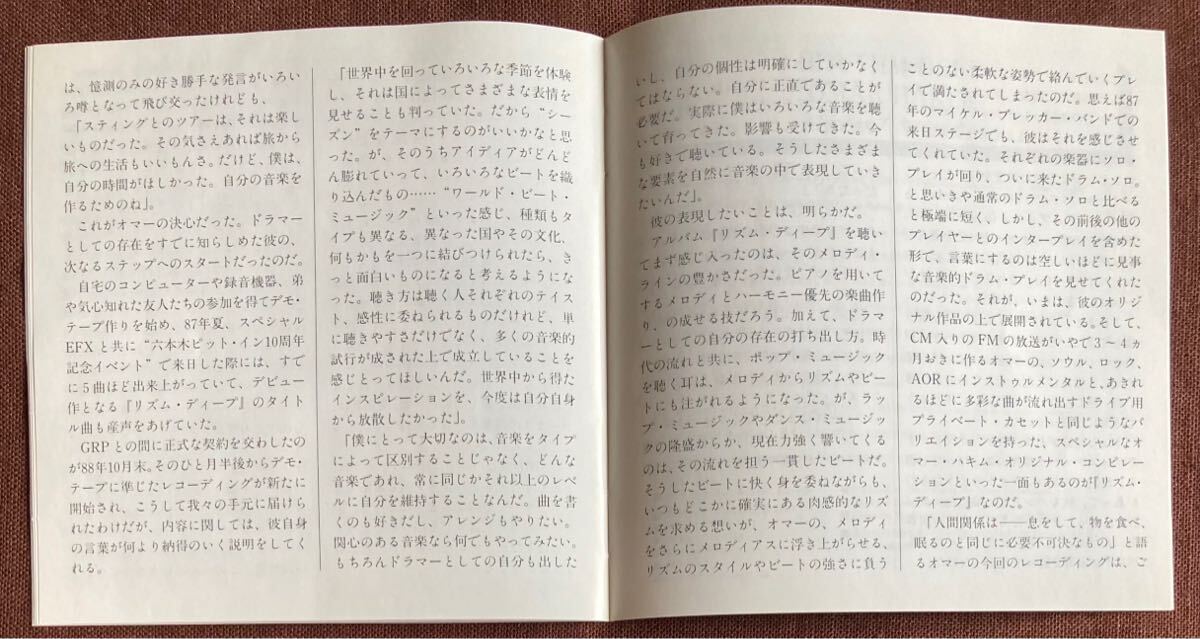 は、憶測のみの好き勝手な発言がいろい
ろ噂となって飛び交ったけれども、
「スティングとのツアーは、それは楽し
いものだった。その気さえあれば旅から
旅への生活もいいもんさ。だけど、僕は、
自分の時間がほしかった。自分の音楽を
作るためのね」。
これがオマーの決心だった。ドラマー
としての存在をすでに知らしめた彼の、
次なるステップへのスタートだったのだ。
自宅のコンピューターや録音機器、弟
や気心知れた友人たちの参加を得てデモ・
テープ作りを始め、87年夏、スペシャル
EFXと共に“六本木ピット・イン10周年
記念イベント”で来日した際には、すで
に5曲ほど出来上がっていて、デビュー
作となる『リズム・ディープ』のタイト
ル曲も産声をあげていた。
GRPとの間に正式な契約を交わしたの
が88年10月末。そのひと月半後からデモ・
テープに準じたレコーディングが新たに
開始され、こうして我々の手元に届けら
れたわけだが、内容に関しては、彼自身
の言葉が何より納得のいく説明をしてく
れる。
「世界中を回っていろいろな季節を体験
し、それは国によってさまざまな表情を
見せることも判っていた。だから“シー
ズン”をテーマにするのがいいかなと思
った。が、そのうちアイディアがどんど
ん膨れていって、いろいろなビートを織
り込んだもの……“ワールド・ビート・
ミュージック”といった感じ、種類もタ
イプも異なる、異なった国やその文化、
何もかもを一つに結びつけられたら、き
っと面白いものになると考えるようにな
った。聴き方は聴く人それぞれのテイス
ト、感性に委ねられるものだけれど、単
に聴きやすさだけでなく、多くの音楽的
試行が成された上で成立していることを
感じとってほしいんだ。世界中から得た
インスピレーションを、今度は自分自身
から放散したかった」。
「僕にとって大切なのは、音楽をタイプ
によって区別することじゃなく、どんな
音楽であれ、常に同じかそれ以上のレベ
ルに自分を維持することなんだ。曲を書
くのも好きだし、アレンジもやりたい。
関心のある音楽なら何でもやってみたい。
もちろんドラマーとしての自分も出した
いし、自分の個性は明確にしていかなく
てはならない。自分に正直であることが
必要だ。実際に僕はいろいろな音楽を聴
いて育ってきた。影響も受けてきた。今
も好きで聴いている。そうしたさまざま
な要素を自然に音楽の中で表現していき
たいんだ」。
彼の表現したいことは、明らかだ。
アルバム『リズム・ディープ』を聴い
てまず感じ入ったのは、そのメロディ・
ラインの豊かさだった。ピアノを用いて
するメロディとハーモニー優先の楽曲作
り、の成せる技だろう。加えて、ドラマ
ーとしての自分の存在の打ち出し方。時
代の流れと共に、ポップ・ミュージック
を聴く耳は、メロディからリズムやビー
トにも注がれるようになった。が、ラッ
プ・ミュージックやダンス・ミュージッ
クの隆盛からか、現在力強く響いてくる
のは、その流れを担う一貫したビートだ。
そうしたビートに快く身を委ねながらも、
いつもどこかに確実にある肉感的なリズ
ムを求める想いが、オマーの、メロディ
をさらにメロディアスに浮き上がらせる、
リズムのスタイルやビートの強さに負う
ことのない柔軟な姿勢で絡んでいくプレ
イで満たされてしまったのだ。思えば87
年のマイケル・ブレッカー・バンドでの
来日ステージでも、彼はそれを感じさせ
てくれていた。それぞれの楽器にソロ・
プレイが回り、ついに来たドラム・ソロ。
と思いきや通常のドラム・ソロと比べる
と極端に短く、しかし、その前後の他の
プレイヤーとのインタープレイを含めた
形で、言葉にするのは空しいほどに見事
な音楽的ドラム・プレイを見せてくれた
のだった。それが、いまは、彼のオリジ
ナル作品の上で展開されている。そして、
CM入りのFMの放送がいやで3～4ヵ
月おきに作るオマーの、ソウル、ロック、
AORにインストゥルメンタルと、あきれ
るほどに多彩な曲が流れ出すドライブ用
プライベート・カセットと同じようなバ
リエイションを持った、スペシャルなオ
マー・ハキム・オリジナル・コンピレー
ションといった一面もあるのが『リズム・
ディープ』なのだ。
「人間関係は――息をして、物を食べ、
眠るのと同じに必要不可決なもの」と語
るオマーの今回のレコーディングは、ご